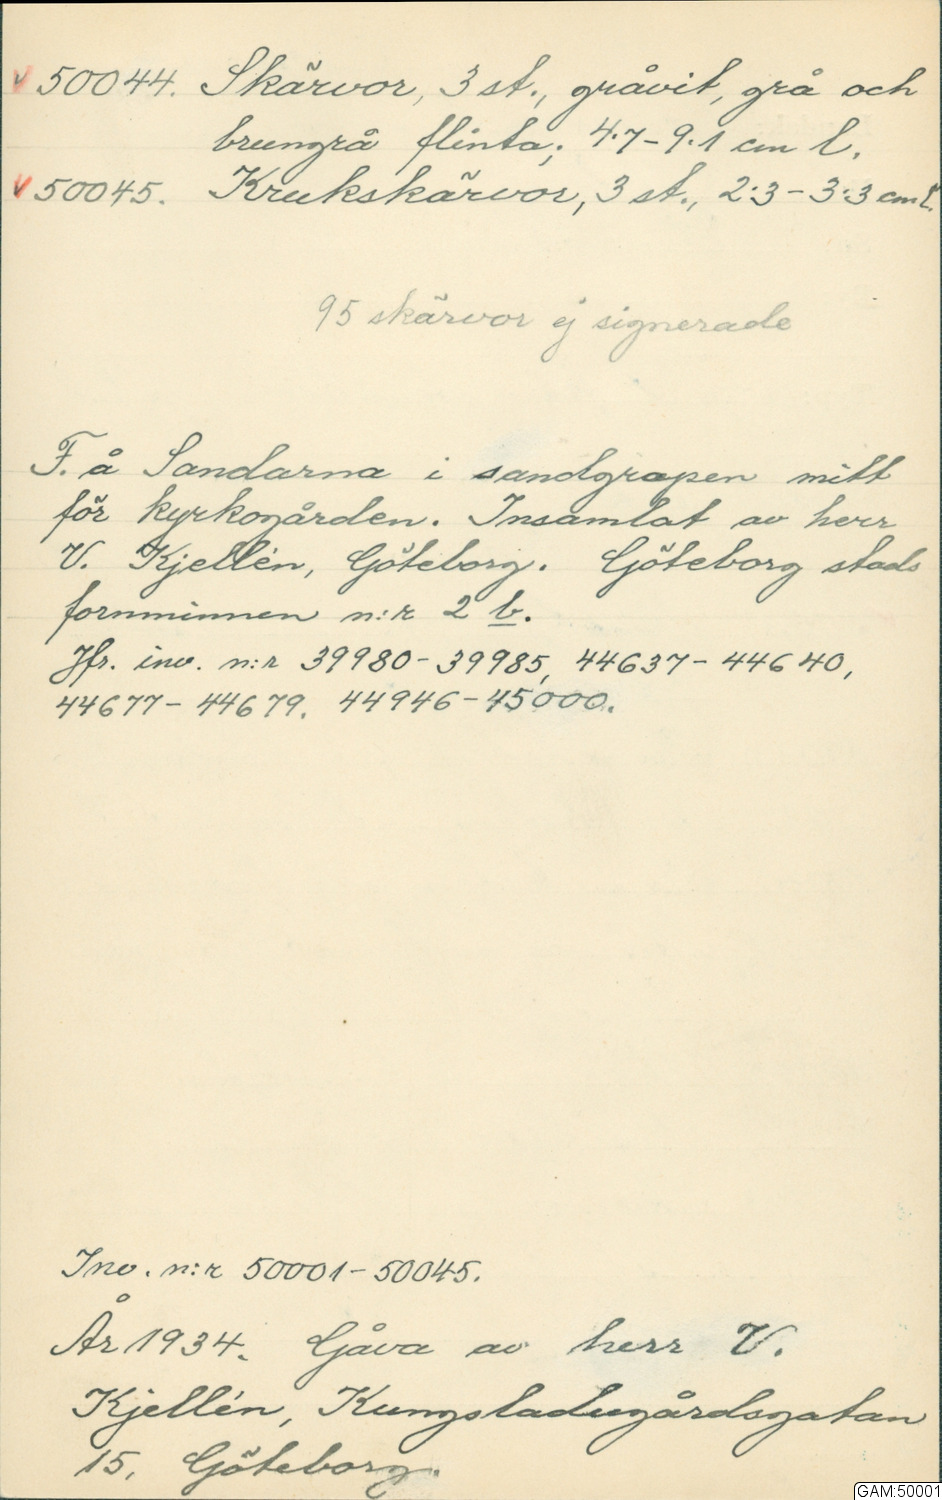 v 50044. Skärvor, 3 st., gråvit, grå och
brungrå flinta; 4·7-9·1 cm l.
v 50045. Krukskärvor, 3 st., 2:3-3:3 cm l.
95 skärvor ej signerade
F. å Sandarna i sandgropen mitt
för kyrkogården. Insamlat av herr
V. Kjellén, Göteborg. Göteborg stads
fornminnen n:r 2 b.
Jfr. inv. n:r 39980-39985, 44637-44640,
44677-44679. 44946-45000.
Inv. n:r 50001-50045.
År 1934. Gåva av herr V.
Kjellén, Kungsladugårdsgatan
15, Göteborg.
GAM:50001